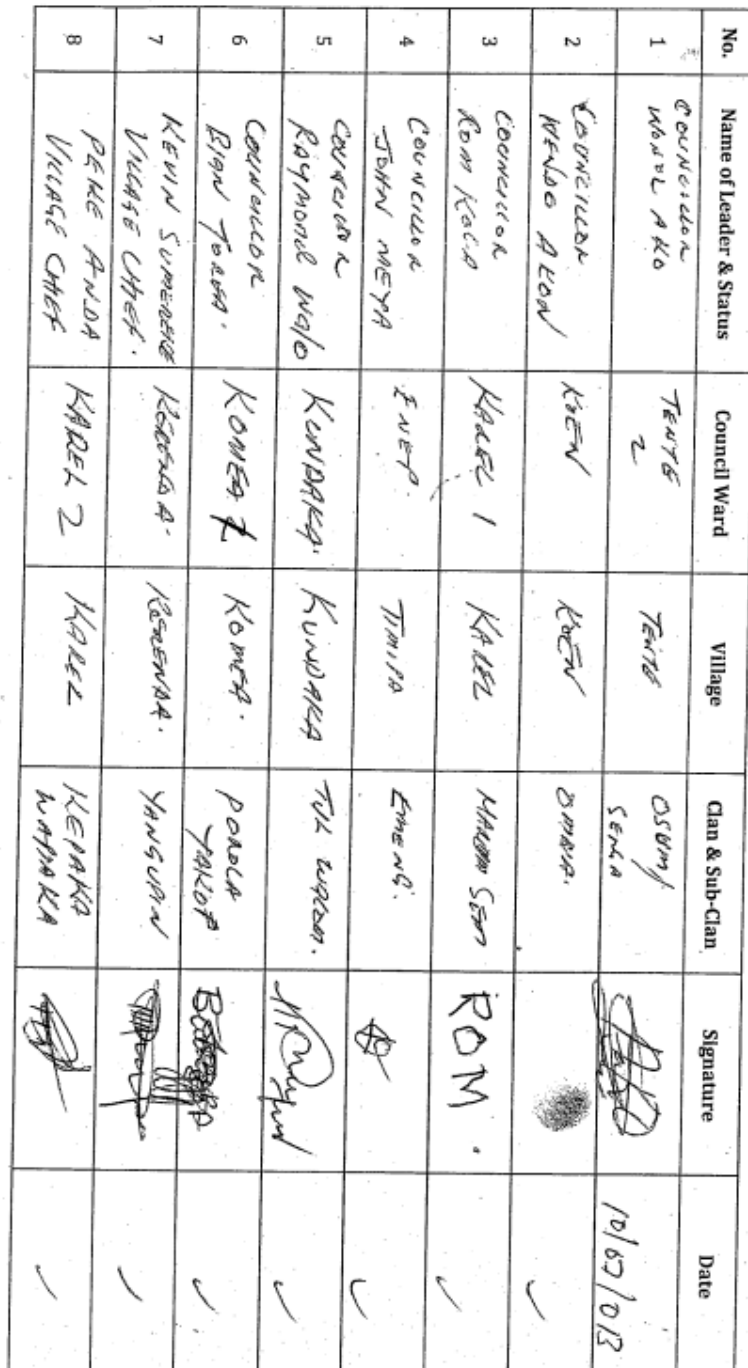 No. Name of Leader & Status Council Ward Village Clan & Sub-Clan Signature Date
1 COUNCILLOR TENTE 2 TENTE OSUM/ SENGA 10/07/013
2 COUNCILLOR WENDO AKON KOEN KOEN ✓
3 COUNCILLOR ROM KOLA KAREL 1 KAREL ROM. ✓
4 COUNCILLOR JOHN MEYA TIMIPA EMENG. ✓
5 COUNCILLOR RAYMOND WALO KUNDAKA. KUNDAKA ✓
6 COUNCILLOR KOMEA KOMEA. POROLA YAKOP ✓
7 KEVIN VILLAGE CHIEF. YANGUPIN ✓
8 PEKE ANDA VILLAGE CHIEF KAREL 2 KAREL KEPAKA WAPAKA ✓